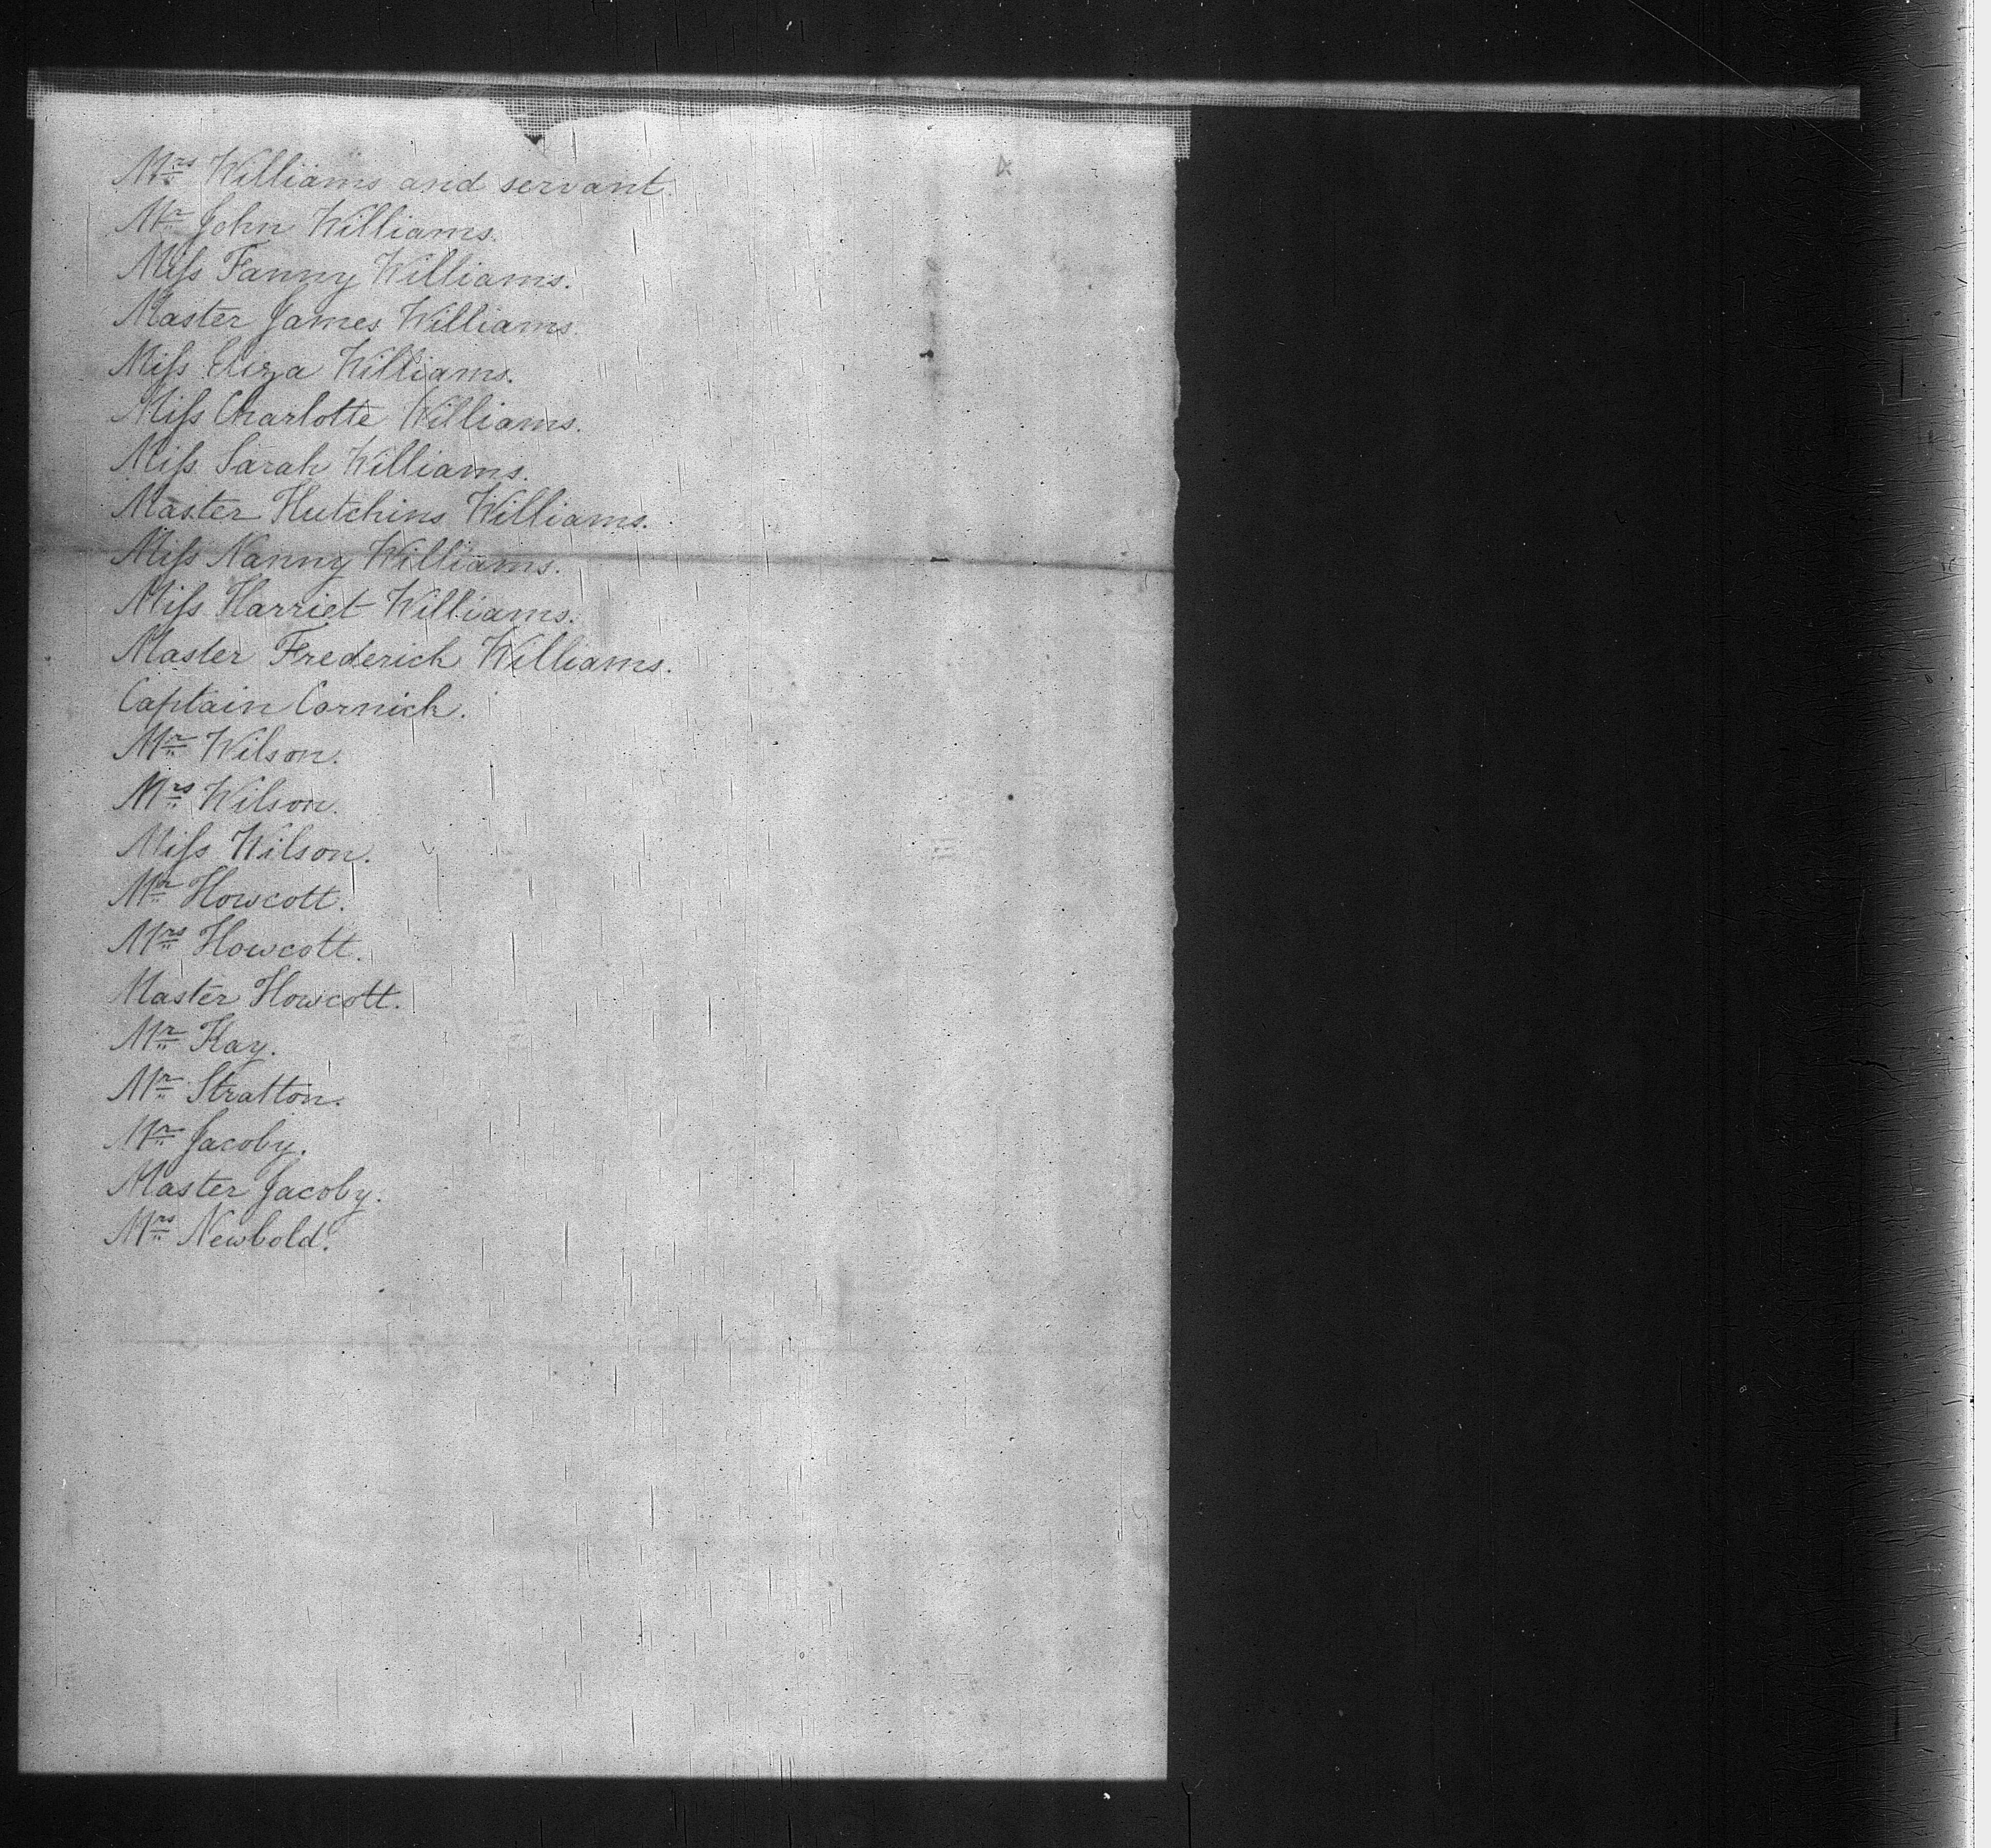 Mrs Williams and servant.
Mr John Williams.
Miſs Fanny Williams.
Master James Williams.
Miſs Eliza Williams.
Miſs Charlotte Williams.
Miſs Sarah Williams.
Master Hutchins Williams.
Miſs Nanny Williams.
Miſs Harriet Williams.
Master Frederich Williams.
Captain Cornich.
Mr Wilson.
Mrs Wilson.
Miſs Wilson.
Mr Howcott.
Mrs Howcott.
Master Howcott.
Mr Kay.
Mr Stratton.
Mr Jacoby.
Master Jacoby.
Mrs Newbold.